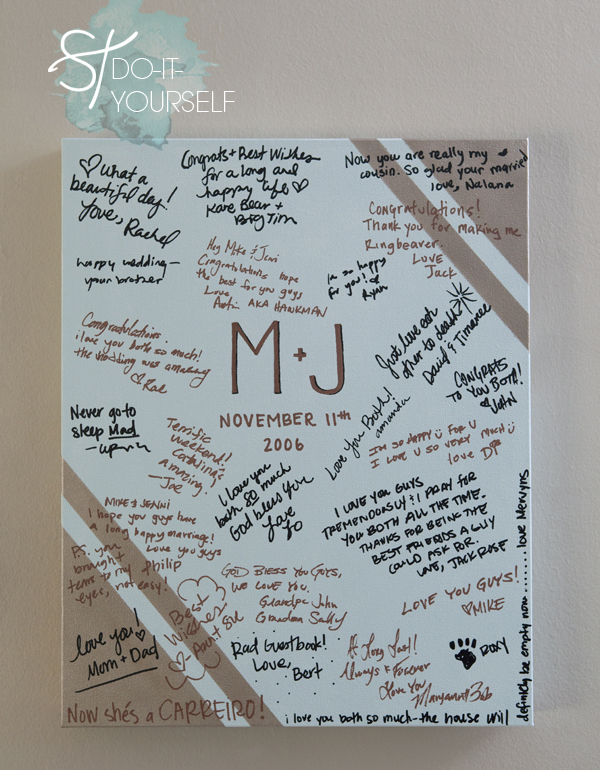 ST
DO-IT-
YOURSELF
♡What a
beautiful day!
Love, Rachel
Congrats + Best Wishes
for a long and
happy life ♡
Kare Bear +
Big Tim
Now you are really my
cousin. So glad your married
love, Nalana
CONGRATULATIONS!
Thank you for making me
Ringbearer.
LUVE
Jack
happy wedding—
your brother
Hey Mike & Jeni
Congratulations hope
the best for you guys
Love
AKA HAWKMAN
I'm so happy
for you!
Ryan
Just love each
other to death!
David & Timanee
Congratulations.
i love you both so much!
the wedding was amazing
♡Rae
M+J
NOVEMBER 11th
2006
CONGRATS
TO YOU BOTH!
♡John
Never go to
sleep Mad
Terrific
weekend!
Catalina's
amazing.
—Joe
Love You Both!
amanda
I'M SO HAPPY FOR U
I LOVE U SO VERY MUCH
love DP
I love you
both so much
God bless you
Love
Jo
I LOVE YOU GUYS
TREMENDOUSLY! I PRAY FOR
YOU BOTH ALL THE TIME.
THANKS FOR BEING THE
BEST FRIENDS A GUY
COULD ASK FOR.
LOVE, JACK ROSE
MIKE & JENNI
I hope you guys have
a long happy marriage!
Love you guys
Philip
P.S. you
brought
tears to my
eyes, not easy!
GOD BLESS YOU GUYS,
WE LOVE YOU.
Grandpa John
Grandma Sally
LOVE YOU GUYS!
♡MIKE
love you!♡
Mom + Dad
Best
Wishes
♡- Aunt Su
Rad Guestbook!
Love,
Bert
At Long Last!
Always & Forever
Love You
Maryann & Bob
ROXY
Now she's a CARREIRO!
i love you both so much-the house will
definitely be empty now....... love Mervyns